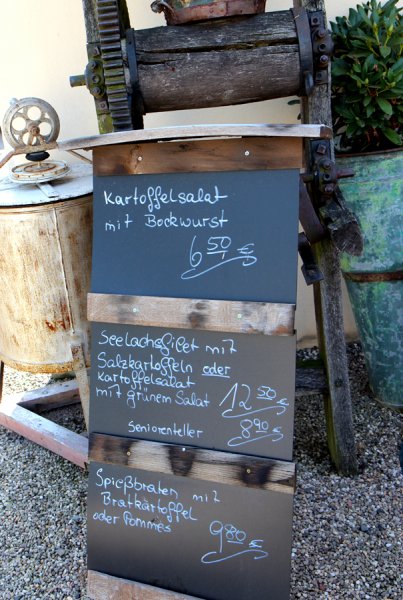 Kartoffelsalat
mit Bockwurst
6 50 €
Seelachsfilet mit
Salzkartoffeln oder
Kartoffelsalat
mit grünem Salat
12 50 €
Seniorenteller
8 90 €
Spießbraten mit
Bratkartoffel
oder Pommes
9 80 €